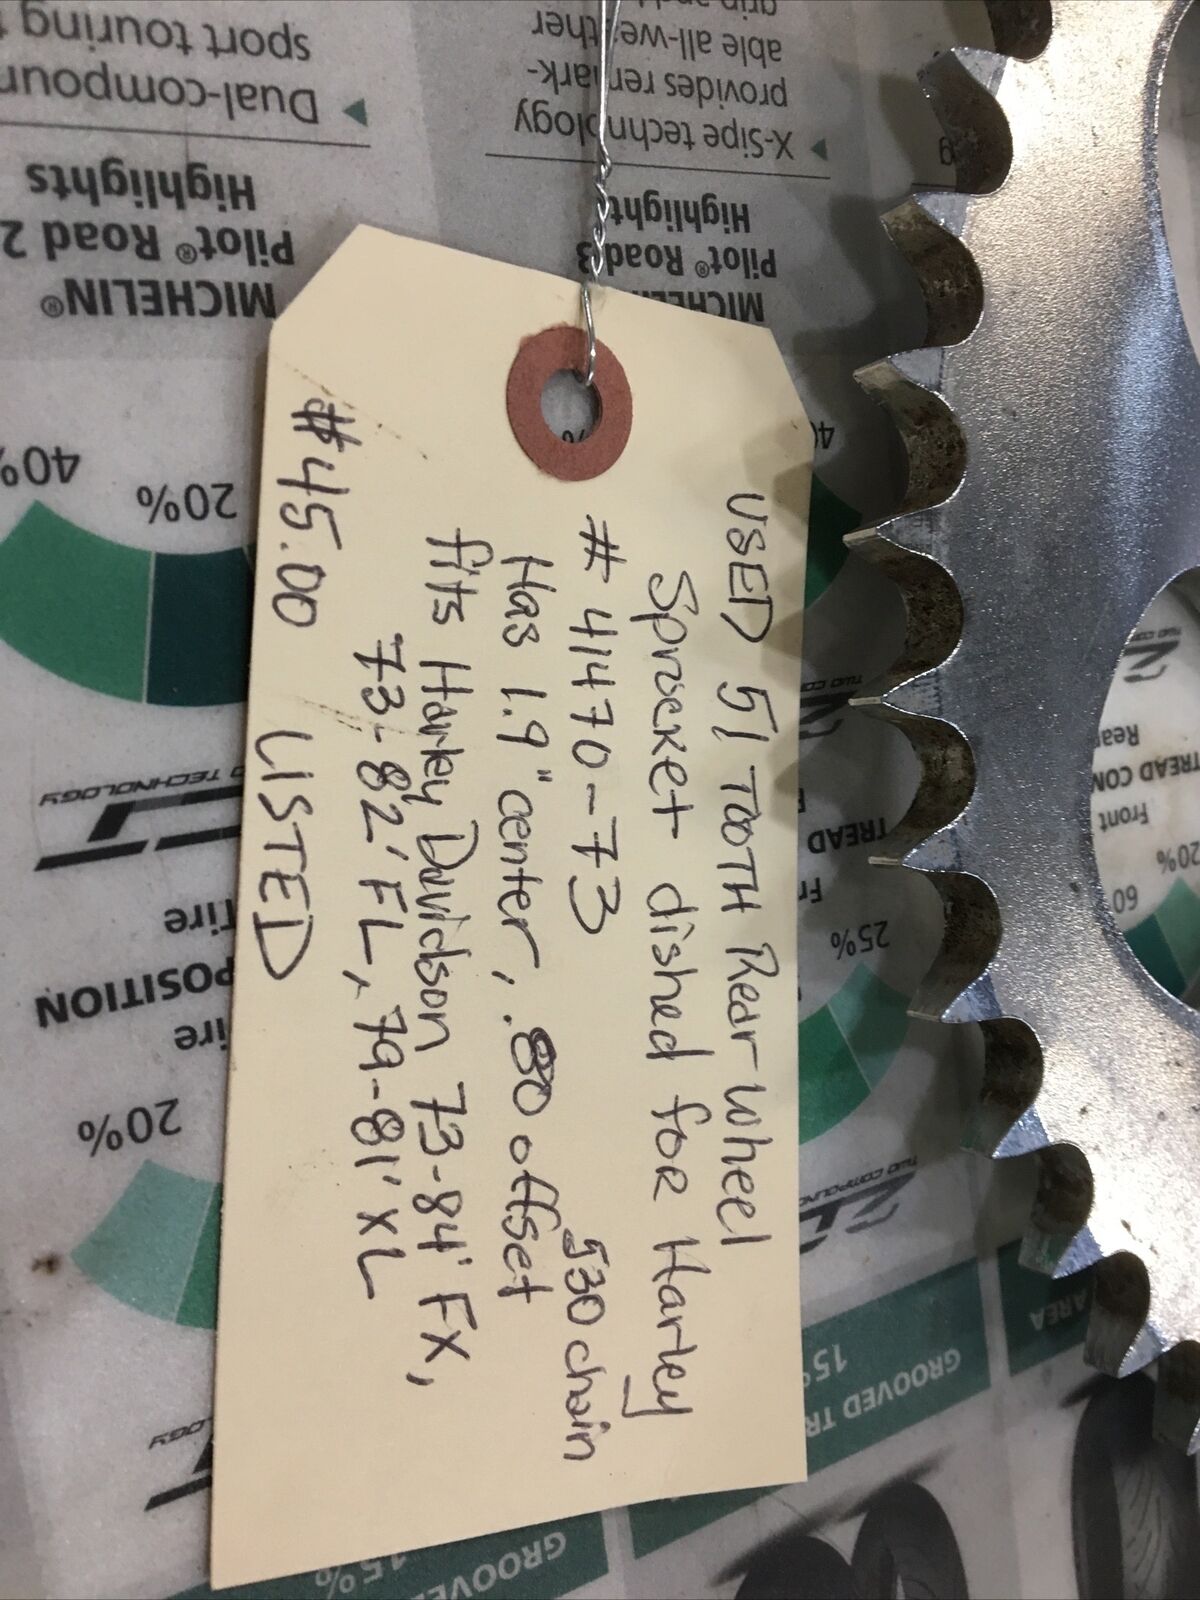 USED 51 TOOTH Rear wheel
Sprocket dished for Harley
# 41470-73
530 chain
Has 1.9" center, .80 offset
fits Harley Davidson 73-84' FX,
73-82' FL, 79-81' XL
#45.00 LISTED
MICHELIN®
Pilot® Road 2
Highlights
Dual-compoun
sport touring
MICHEL
Pilot® Road 3
Highlights
X-Sipe technology
provides remark-
able all-weather
grip and
40%
20%
TECHNOLOGY
Tire
POSITION
ire
20%
15%
GROOVE
TWO COMPO
Rea
TREAD CON
Front
20%
60
TWO COM
TREAD
Fr
25%
TWO COMPOUND
AREA
GROOVED TR
15%